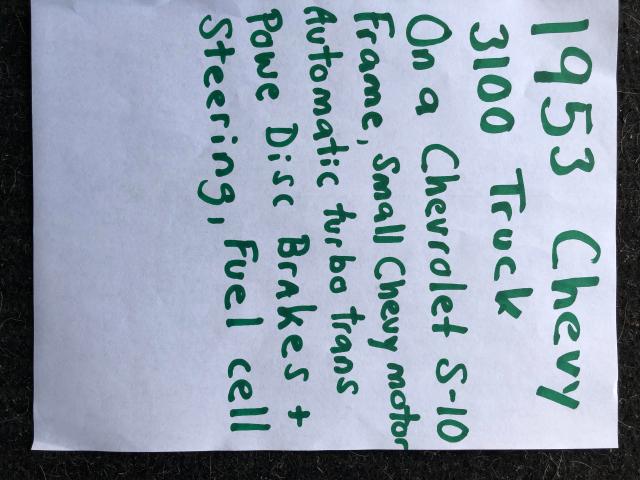 1953 Chevy
3100 Truck
On a Chevrolet S-10
Frame, Small Chevy motor
Automatic turbo trans
Powe Disc Brakes +
Steering, Fuel cell